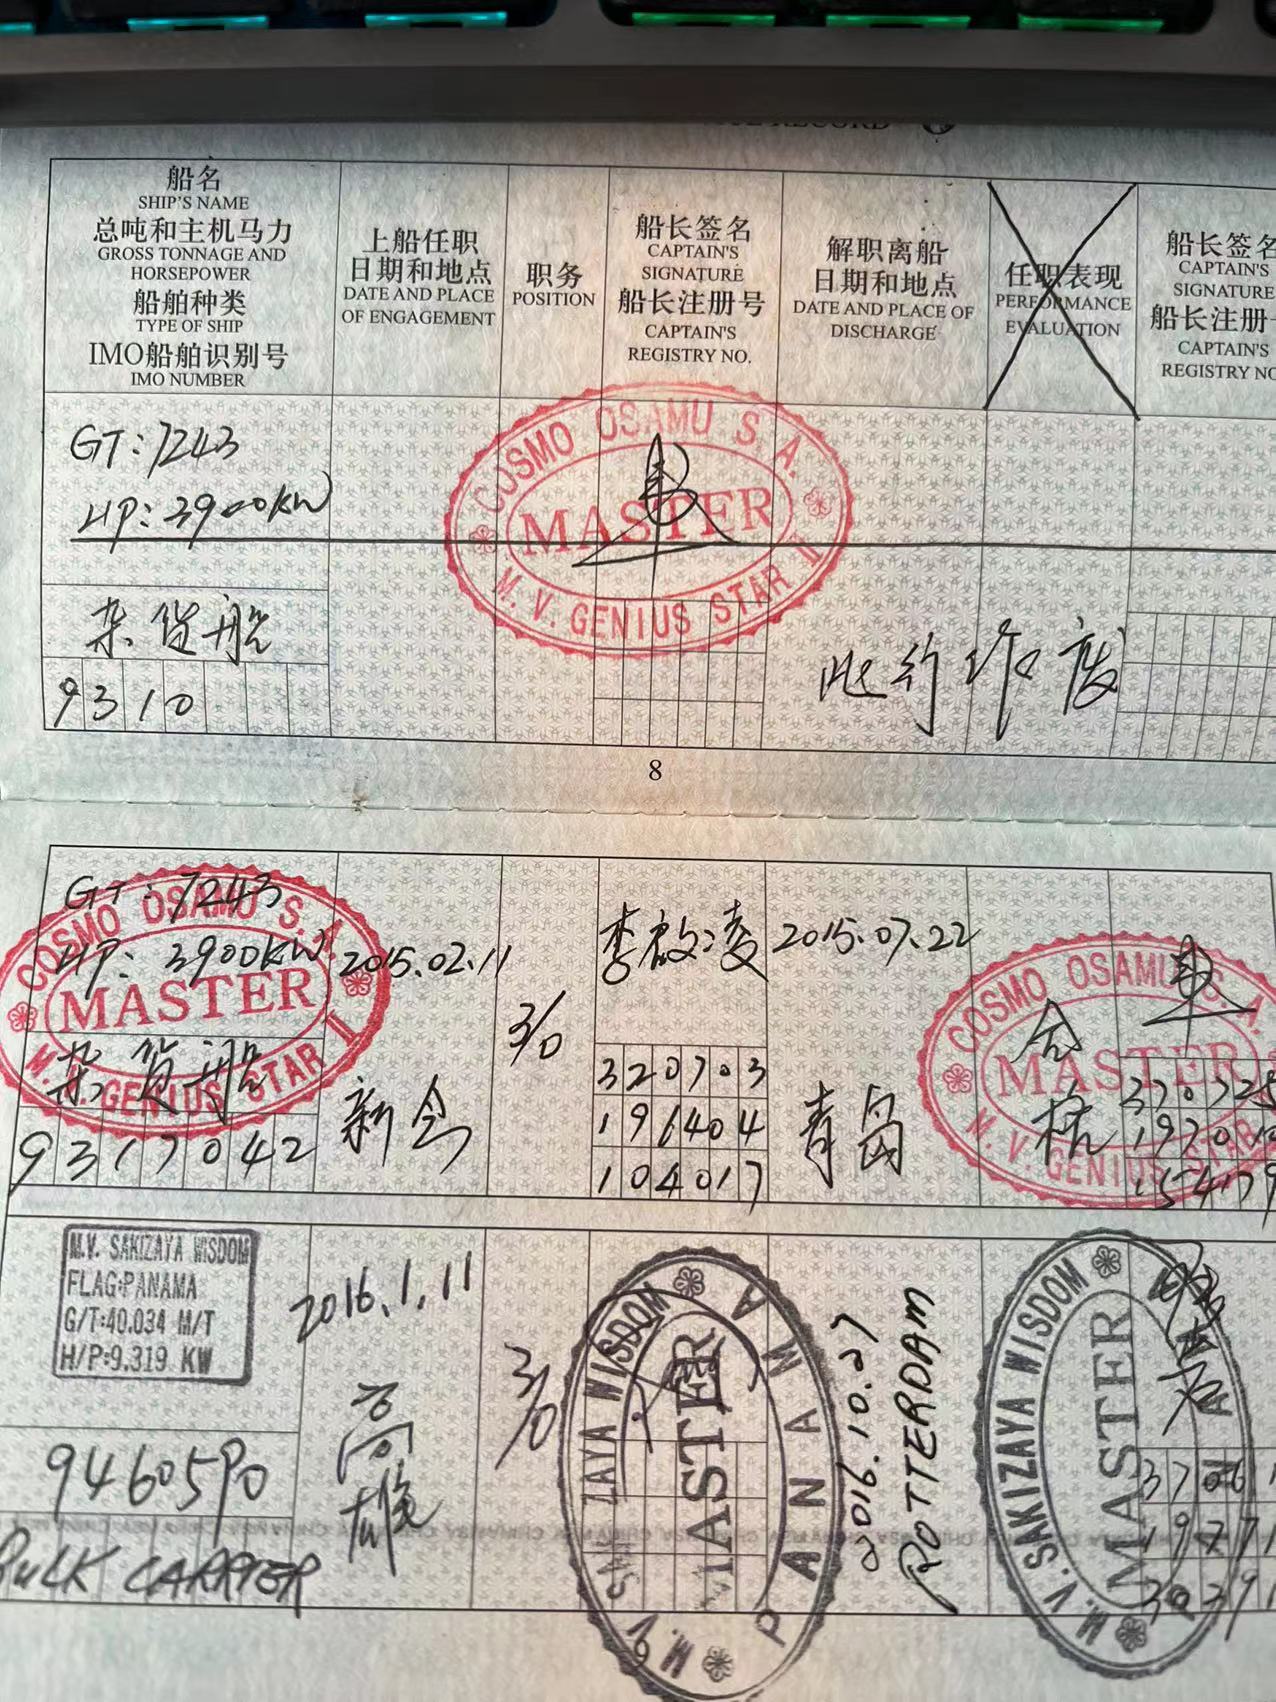 船名
SHIP'S NAME
总吨和主机马力
GROSS TONNAGE AND
HORSEPOWER
船舶种类
TYPE OF SHIP
IMO船舶识别号
IMO NUMBER
上船任职
日期和地点
DATE AND PLACE
OF ENGAGEMENT
职务
POSITION
船长签名
CAPTAIN'S
SIGNATURE
船长注册号
CAPTAIN'S
REGISTRY NO.
解职离船
日期和地点
DATE AND PLACE OF
DISCHARGE
任职表现
PERFORMANCE
EVALUATION
船长签名
CAPTAIN'S
SIGNATURE
船长注册
CAPTAIN'S
REGISTRY NO
GT:7243
HP:3900KW
杂货船
9310
COSMO OSAMU S.A.
MASTER
M.V. GENIUS STAR II
此行作废
8
GT:7243
HP:3900KW
杂货船
9317042
COSMO OSAMU S.A.
MASTER
M.V. GENIUS STAR II
2015.02.11
新会
3/0
李啟凌
320703
196404
104017
2015.07.22
青岛
合格
COSMO OSAMU S.A.
MASTER
M.V. GENIUS STAR
M.V. SAKIZAYA WISDOM
FLAG:PANAMA
G/T:40.034 M/T
H/P:9.319 KW
9460590
BULK CARRIER
2016.1.11
高雄
3/0
M.V. SAKIZAYA WISDOM
MASTER
PANAMA
2016.10.27
ROTTERDAM
M.V. SAKIZAYA WISDOM
MASTER